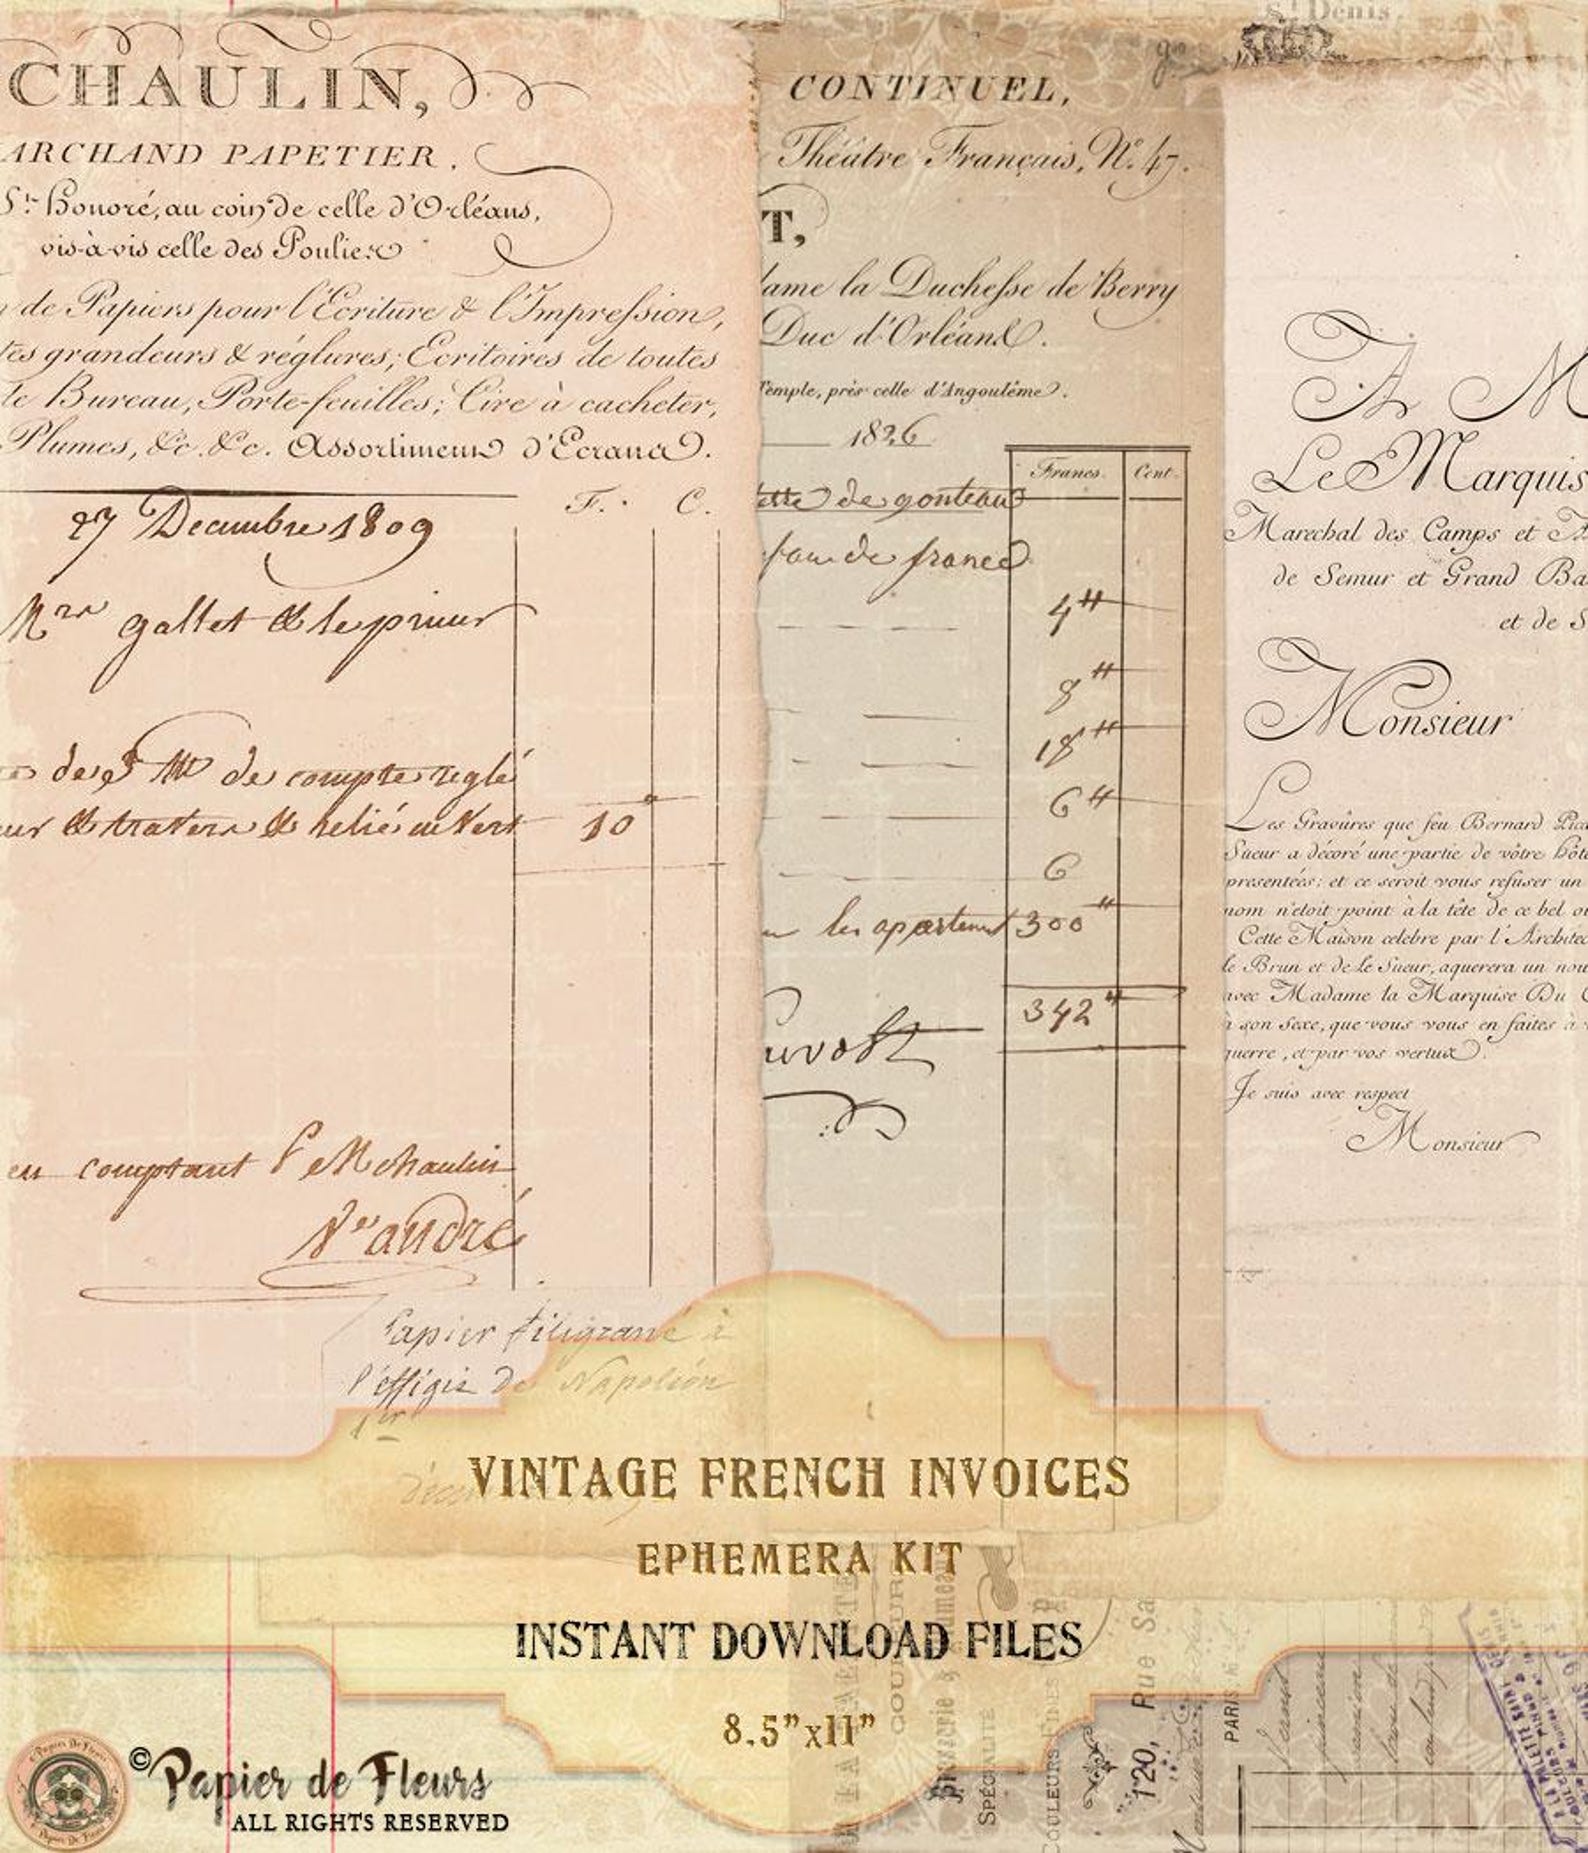 CHAULIN,
ARCHAND PAPETIER.
St. Honoré, au coin de celle d'Orléans,
vis-à-vis celle des Poulies
de Papiers pour l'Ecriture & l'Impression,
tes grandeurs & réglures; Ecritoires de toutes
te Bureau, Porte-feuilles; Cire à cacheter,
Plumes, &c. &c. Assortiment d'Ecrans.
F. C.
27 Decembre 1809
Mrs gallet & le prieur
de compte reglé
& travers & relié en Vert 10
comptant
Vr andré
Papier filigrané à
l'éffigie de Napoléon
1er
CONTINUEL,
Théâtre Français, No. 47.
T,
ame la Duchesse de Berry
Duc d'Orléans.
Temple, près celle d'Angoulême.
1826
Francs. Cent.
de gontaut
de france
4"
8"
18"
6"
6
les apartement 300"
342"
St. Denis.
A M
Le Marquis
Marechal des Camps et
de Semur et Grand Ba
et de S
Monsieur
Les Gravûres que feu Bernard Pica
Sueur a décoré une partie de vôtre hôte
presentées: et ce seroit vous refuser un
nom n'etoit point à la tête de ce bel ou
Cette Maison celebre par l'Architec
le Brun et de Le Sueur, aquerera un nou
avec Madame la Marquise Du C
à son Sexe, que vous vous en faites à
guerre, et par vos vertus.
Je suis avec respect
Monsieur
VINTAGE FRENCH INVOICES
EPHEMERA KIT
INSTANT DOWNLOAD FILES
8.5”x11”
SPÉCIALITÉ
COULEURS FINES
120, Rue Sa
PARIS
©Papier de Fleurs
ALL RIGHTS RESERVED